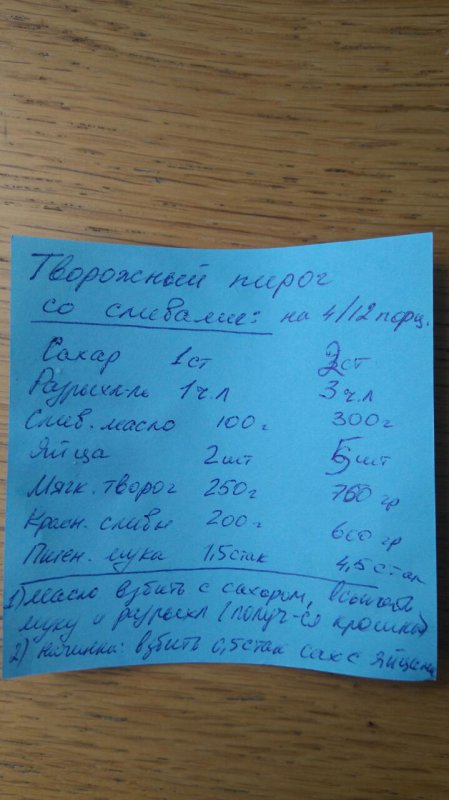 Творожный пирог
со сливами: на 4/12 порц.
Сахар 1ст ст
Разрыхл-ль 1ч.л 3ч.л
Слив. масло 100г 300г
Яйца 2шт шт
Мягк. творог 250г 750 гр
Красн. сливы 200г 600 гр
Пшен. мука 1,5стак 4,5стак
1) масло взбить с сахаром, всыпать
муку и разрыхл (получ-ся крошка)
2) начинка: взбить 0,5стак сах с яйцами